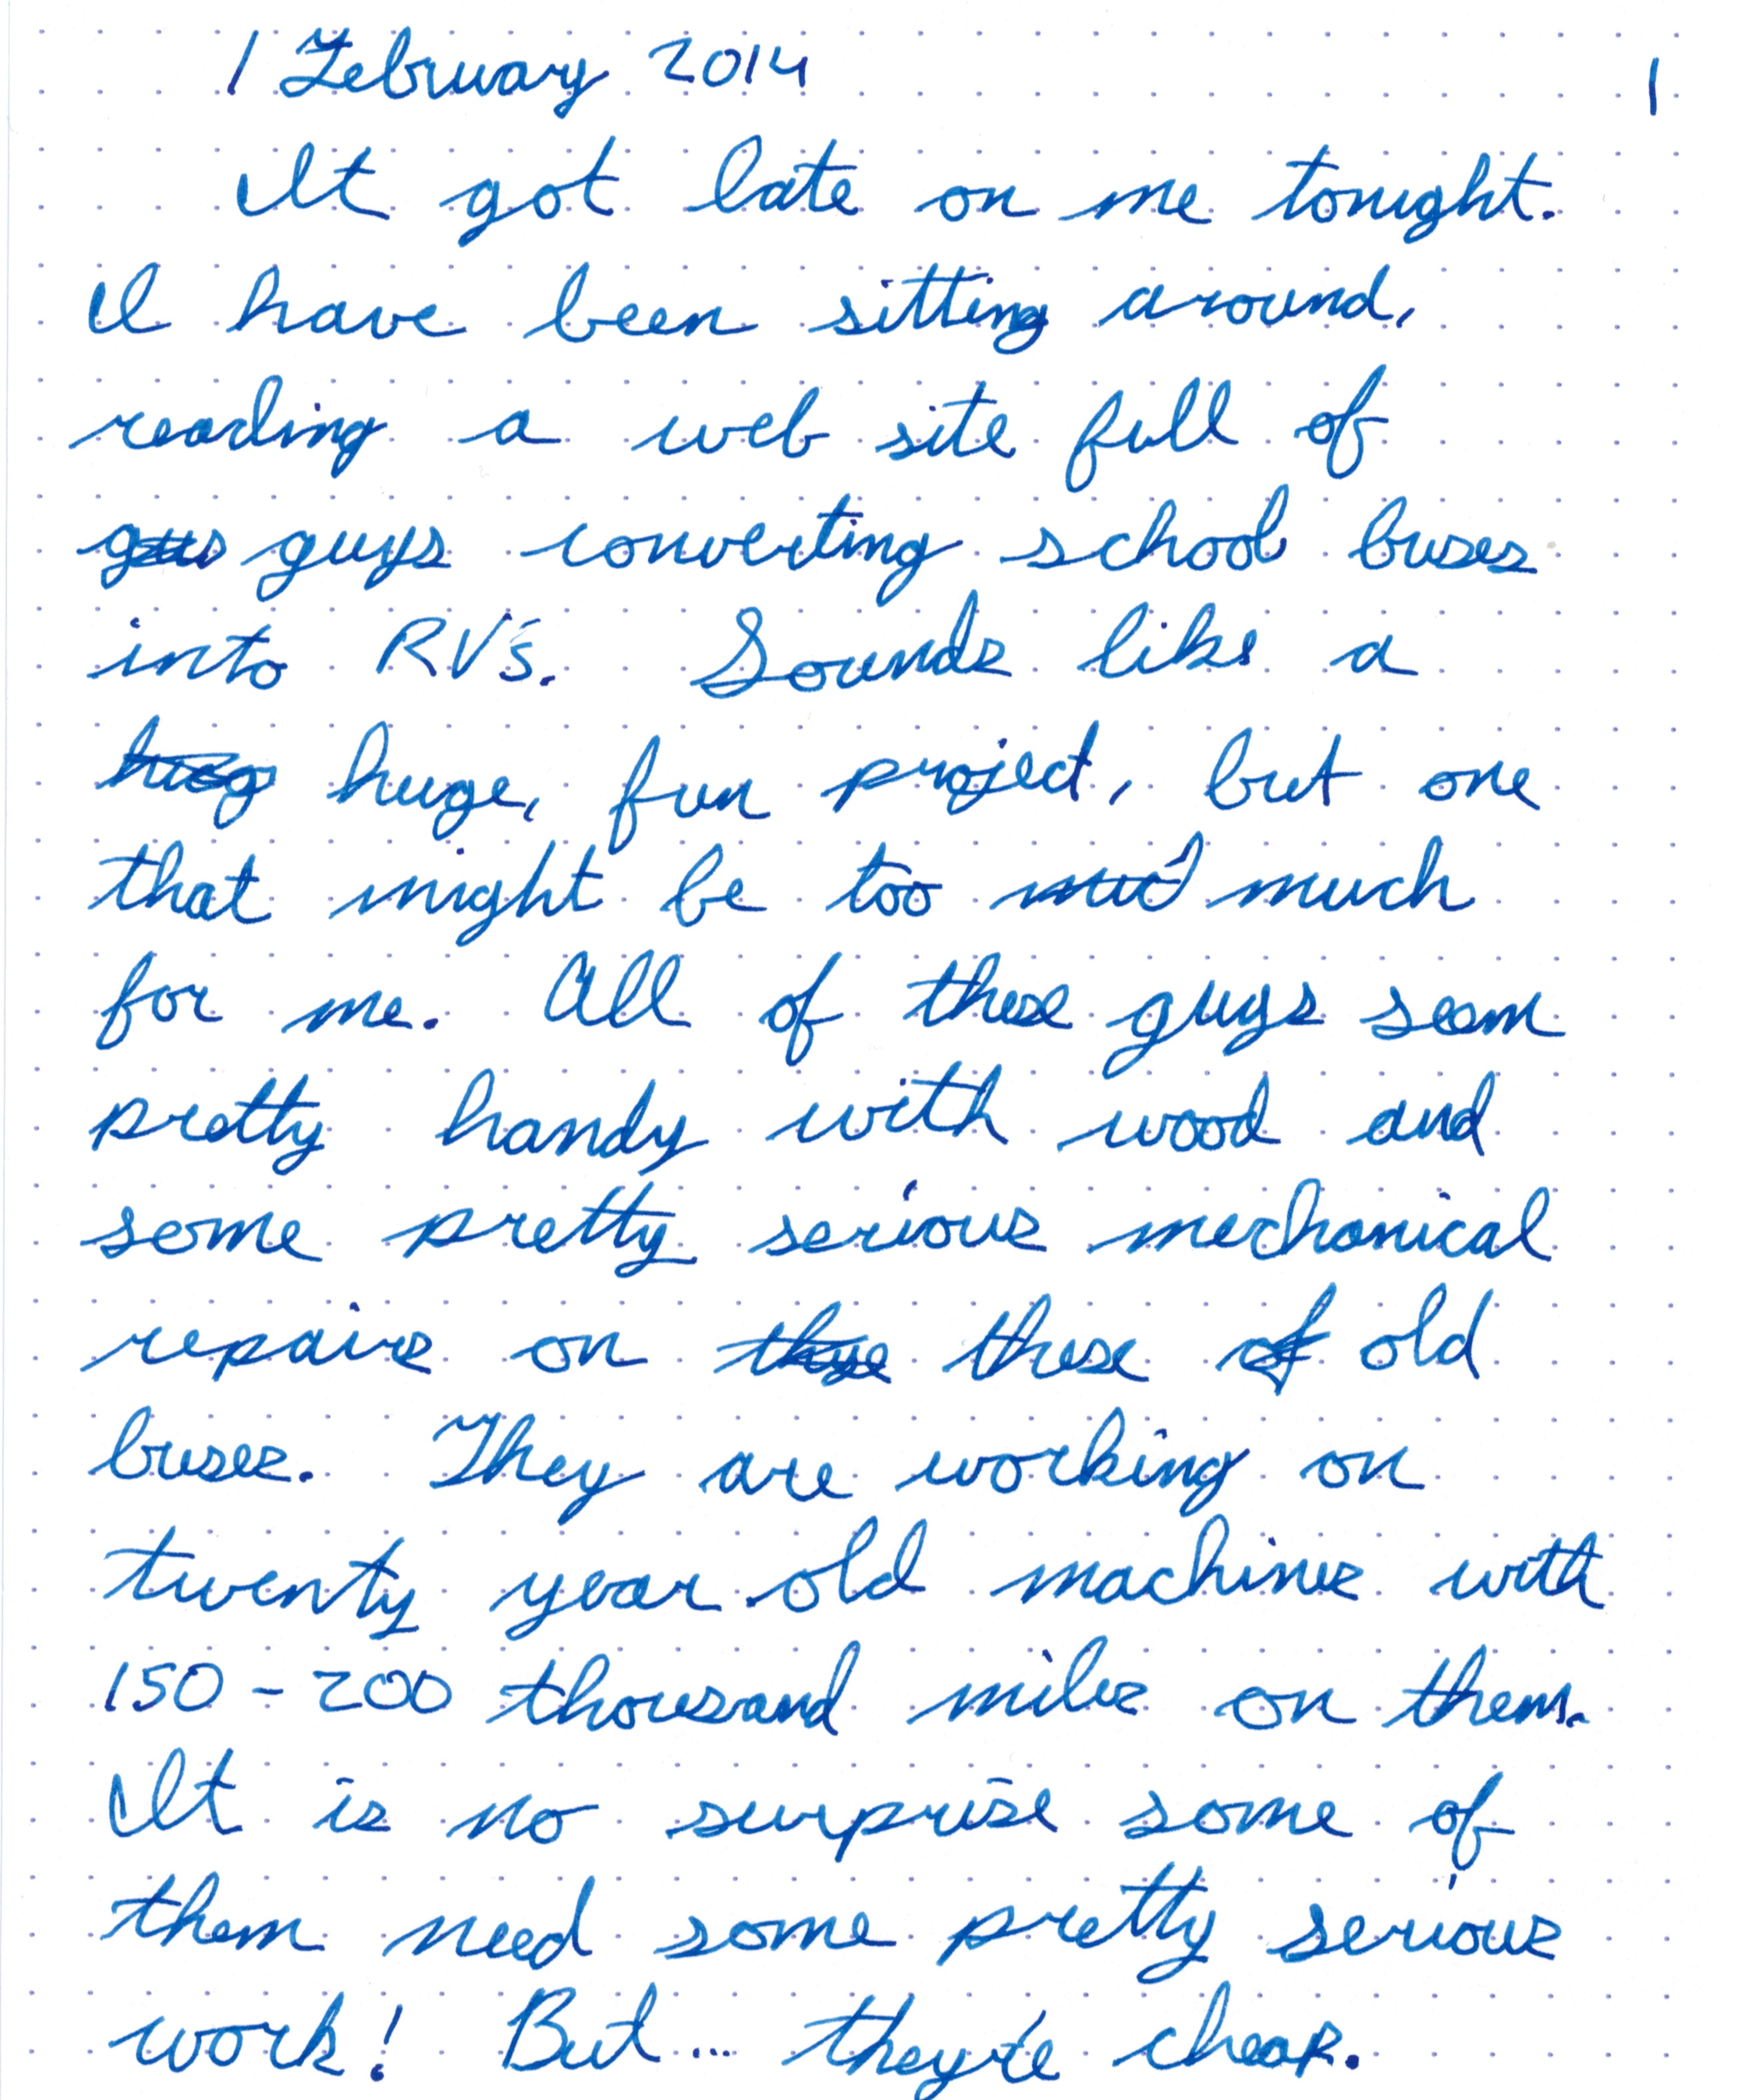 1 February 2014 1
It got late on me tonight.
I have been sitting around,
reading a web site full of
guys converting school buses
into RV's. Sounds like a
huge, fun project, but one
that might be too much
for me. All of these guys seem
pretty handy with wood and
some pretty serious mechanical
repairs on these old
buses. They are working on
twenty year old machines with
150-200 thousand miles on them.
It is no surprise some of
them need some pretty serious
work! But... they're cheap.